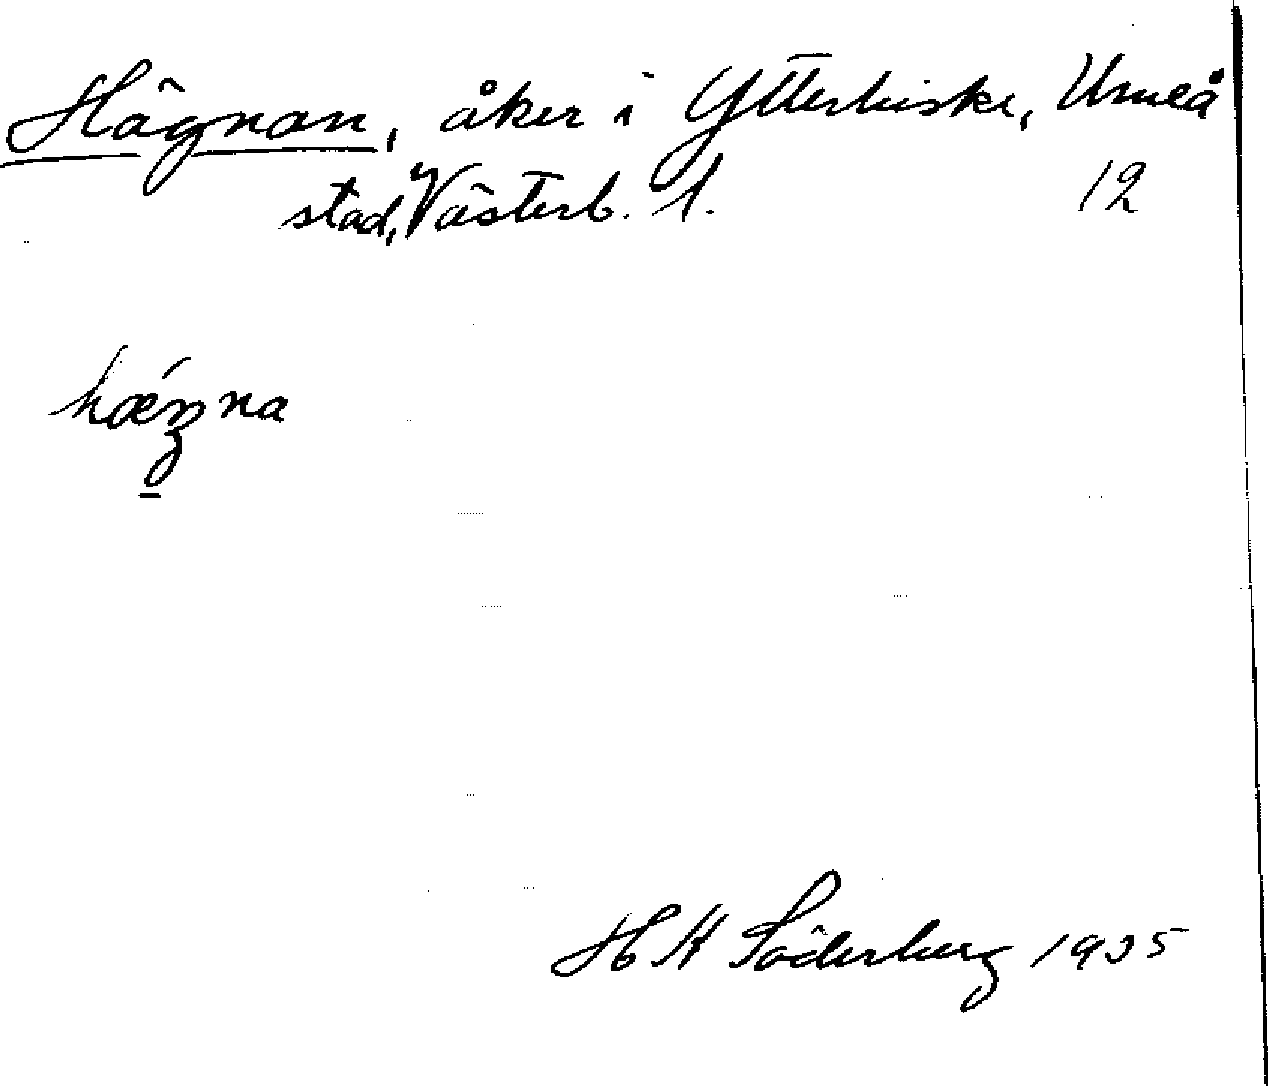 Hägnan, åker i Ytterhiske, Umeå
stad, Västerb. l. 12
H K Söderberg 1935